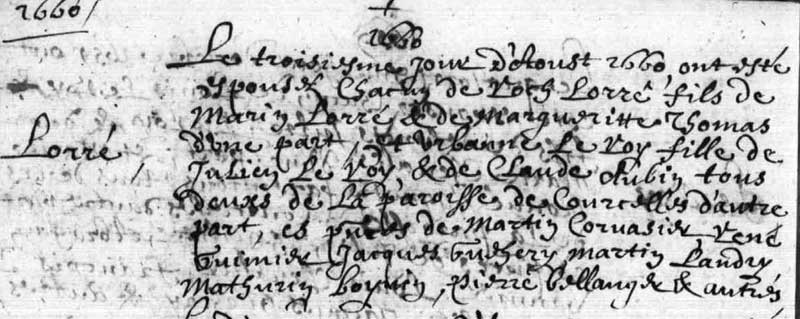 1660
1660
Le troisiesme Jour d'Aoust 1660 ont esté
espousez Chacun de Roch Lorré fils de
Marin Lorré & de Margueritte Thomas
Lorré
d'une part, et Urbanne Le Roy fille de
Julien Le Roy & de Claude Aubin tous
deuxs de La paroisse de Courcelles d'autre
part, es puces de Martin Corvasier René
Guimier Jacques Guehery Martin Landry
Mathurin Boyvin, Pierre Bellanger & autres